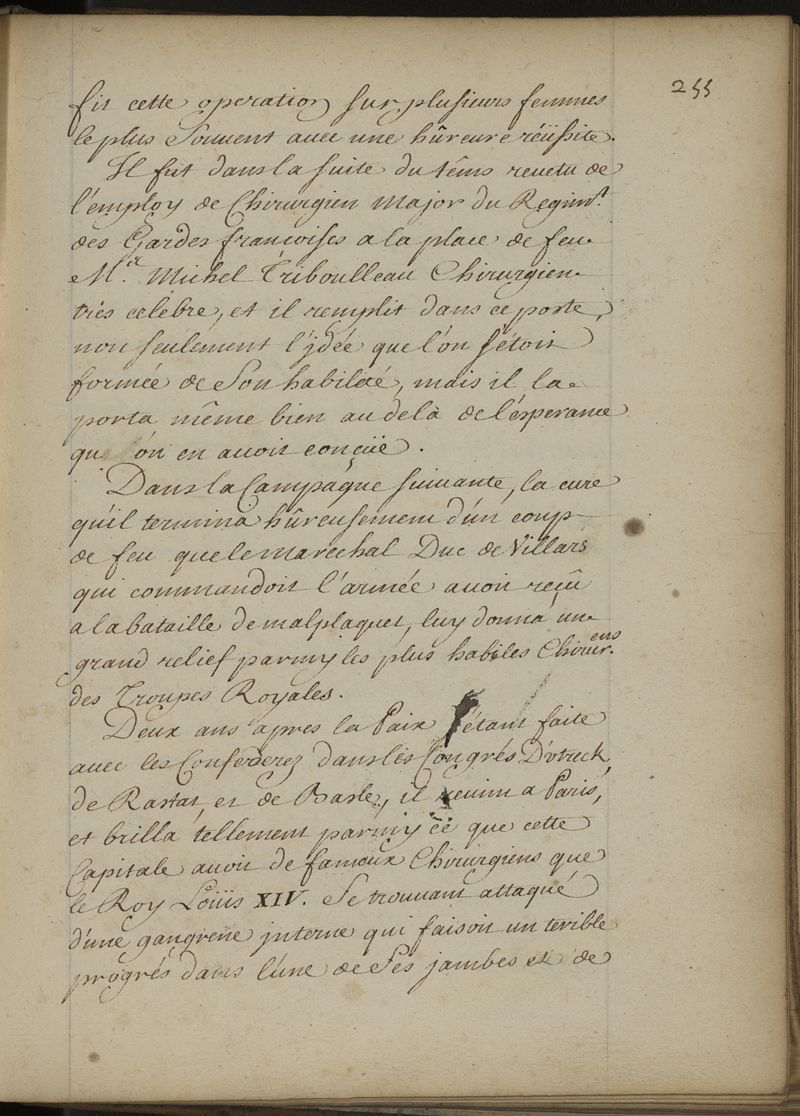 255
fit cette operation sur plusieurs femmes
le plus Souvent avec une hûreure réüssite.
Il fut dans la suite du têms revetu de
l'employ de Chirurgien Major du Regim.t
des Gardes françoises a la place de feu
M.r Michel Triboulleau Chirurgien
trés celébre, et il remplit dans ce poste,
non seulement l'jdée que l'on s'étoit
formée de Son habilité, mais il la
porta même bien au delà de l'ésperance
qu'on en avoit conçüe.
Dans la Campagne suivante, la cure
qu'il termina hûreusement d'ún coup
de feu que le Marechal Duc de Villars
qui commandoit l'armée avoit reçû
a la bataille de malplaquet, luy donna un
grand relief parmy les plus habiles Chirur.ens
des Troupes Royales.
Deux ans apres la Paix s'étant faite
avec les Conféderez dans les Congrés D'utreck,
de Rastat, et de Basle, il revint a Paris,
et brilla tellement parmy ce que cette
Capitale avoit de fameux Chirurgiens que
le Roy Loüis XIV. Se trouvant attaqué
d'une gangrene jnterne qui faisoit un terible
progrés dans l'une de Ses jambes et de